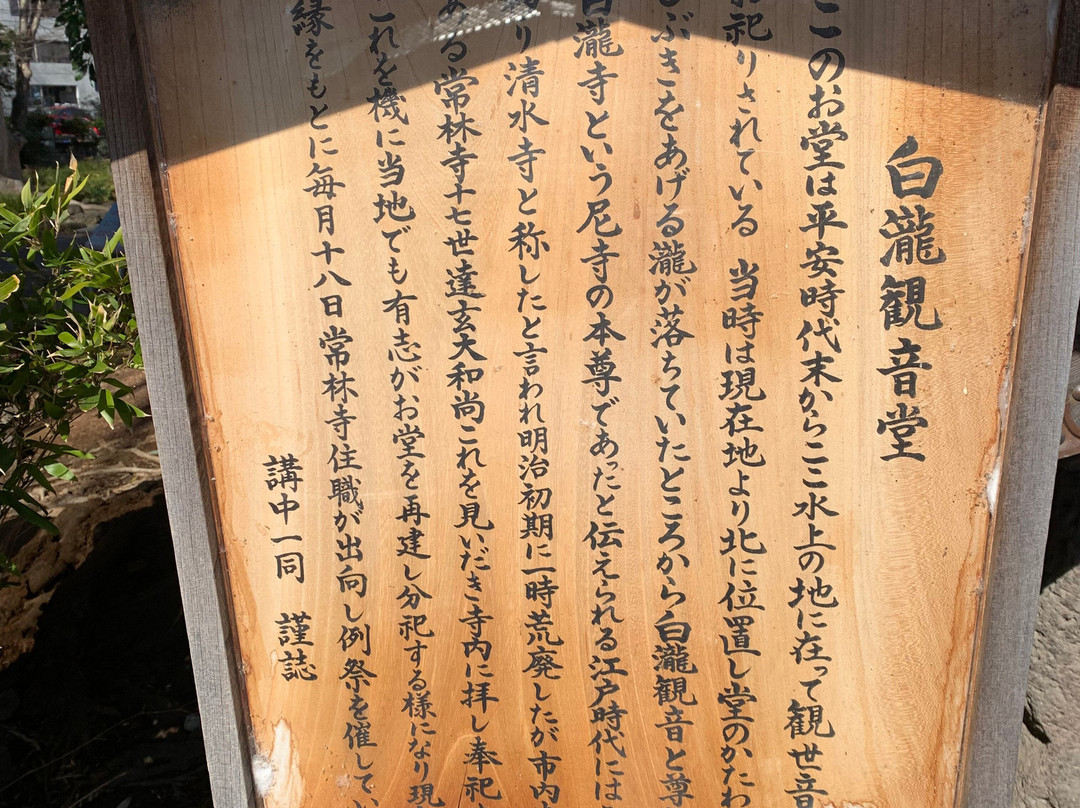 白瀧観音堂
このお堂は平安時代末からここ水上の地に在って観世音
お祀りされている　当時は現在地より北に位置し堂のかたわ
しぶきをあげる瀧が落ちていたところから白瀧観音と尊
白瀧寺という尼寺の本尊であったと伝えられる江戸時代には
り清水寺と称したと言われ明治初期に一時荒廃したが市内
ある常林寺十七世達玄大和尚これを見いだき寺内に拝し奉祀
これを機に当地でも有志がお堂を再建し分祀する様になり現
縁をもとに毎月十八日常林寺住職が出向し例祭を催してい
講中一同　謹誌